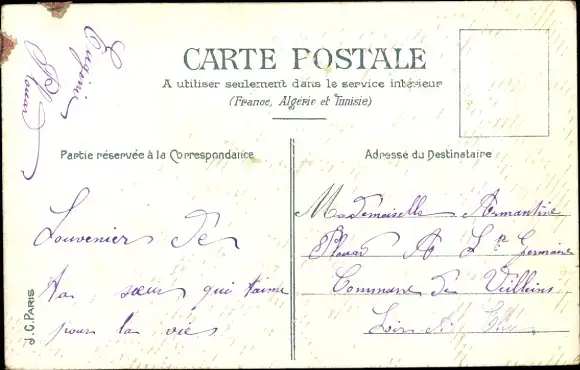 Eugéni
Plouar
CARTE POSTALE
A utiliser seulement dans le service intérieur
(France, Algérie et Tunisie)
Partie réservée à la Correspondance
Adresse du Destinataire
Souvenier De
ta sœur qui t'aime
pour la vie
Mademoiselle Armantine
Plouar A St Germaine
Commune de Veilleins
Loir et Cher
J.C. PARIS